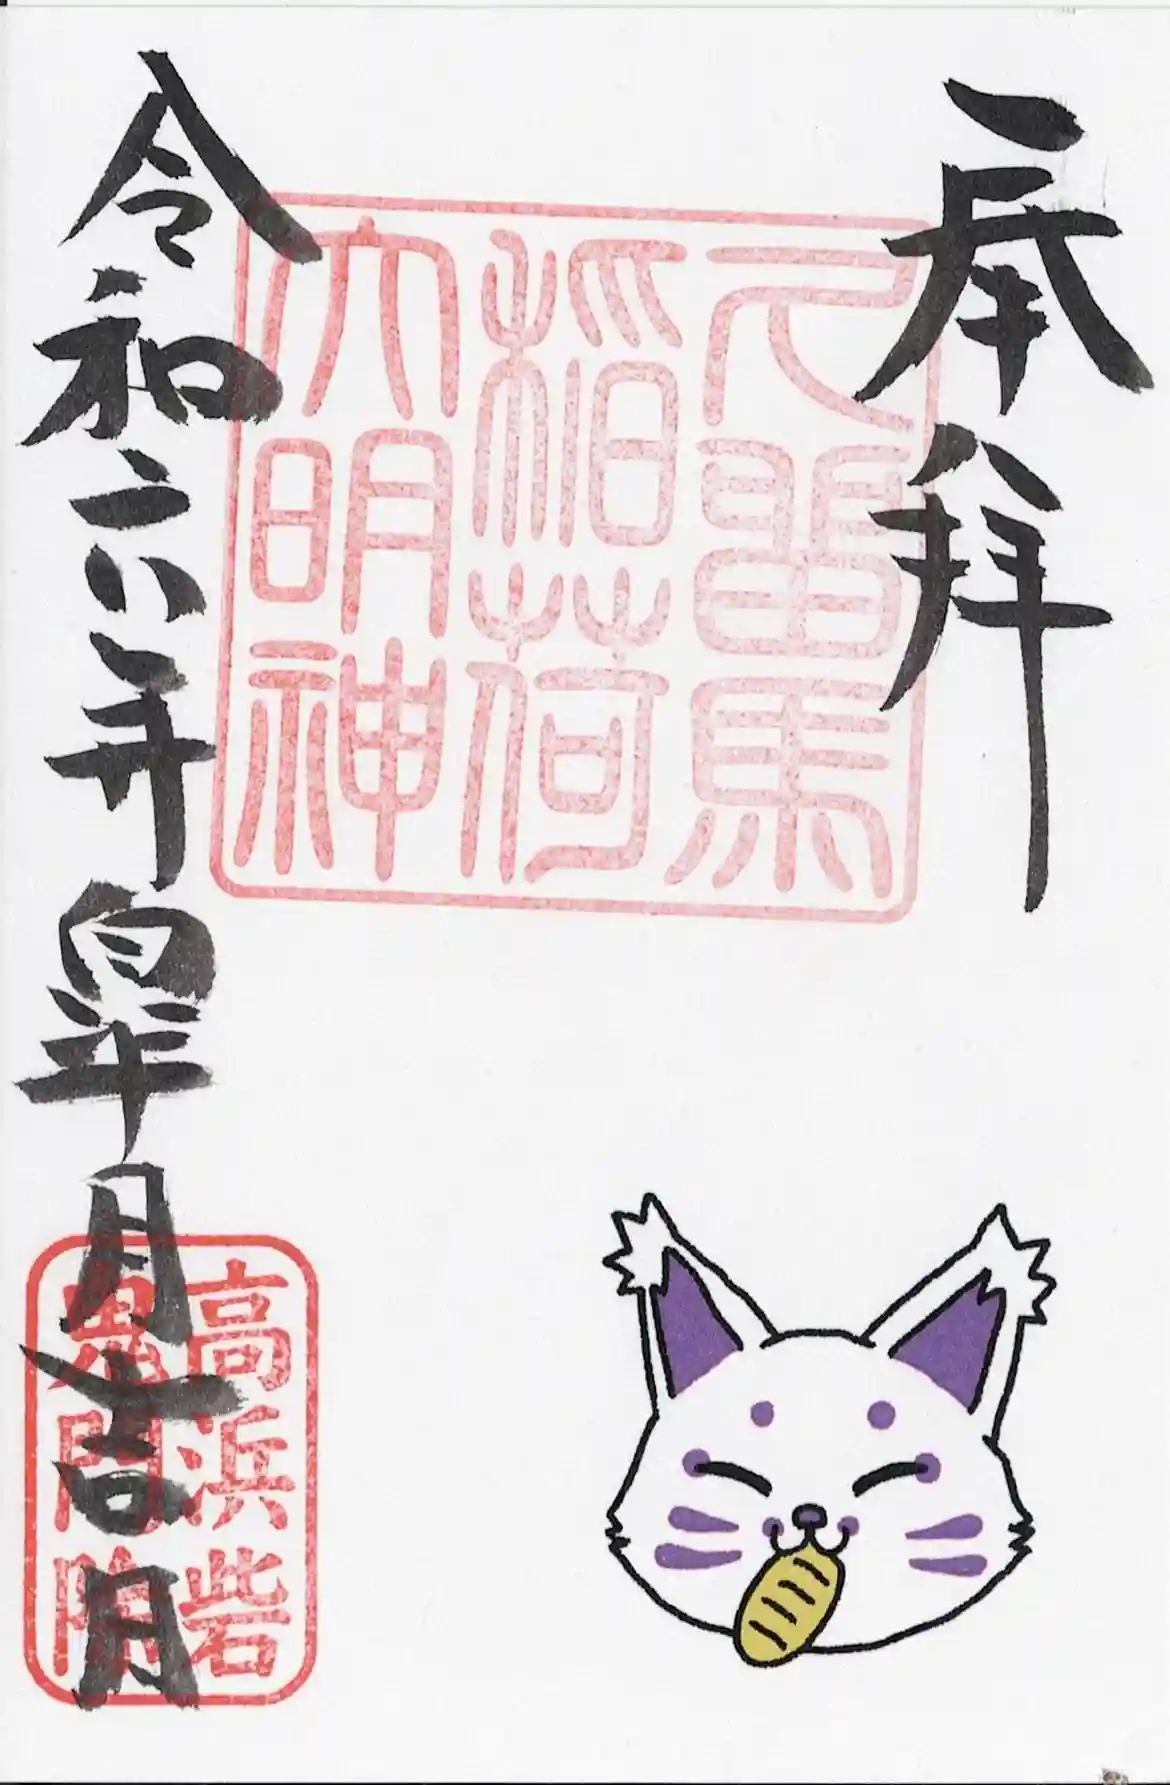 奉拝
稲荷
大明神
令和六年皐月吉日
高浜砦
鬼門除